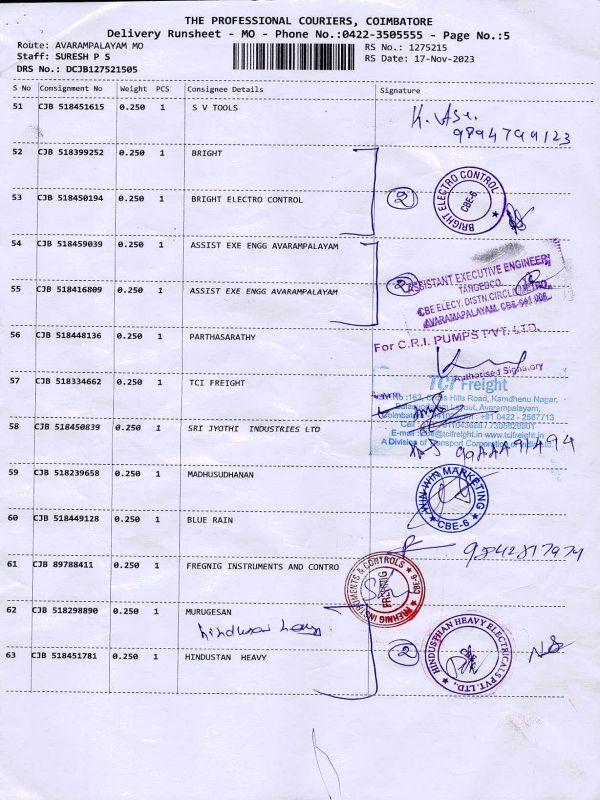 THE PROFESSIONAL COURIERS, COIMBATORE
Delivery Runsheet - MO - Phone No.:0422-3505555 - Page No.:5
Route: AVARAMPALAYAM MO
RS No.: 1275215
Staff: SURESH P S
RS Date: 17-Nov-2023
DRS No.: DCJB127521505
S No Consignment No Weight PCS Consignee Details Signature
51 CJB 518451615 0.250 1 S V TOOLS
9894799123
52 CJB 518399252 0.250 1 BRIGHT
53 CJB 518450194 0.250 1 BRIGHT ELECTRO CONTROL
2
BRIGHT ELECTRO CONTROL
CBE-6.
54 CJB 518459039 0.250 1 ASSIST EXE ENGG AVARAMPALAYAM
55 CJB 518416809 0.250 1 ASSIST EXE ENGG AVARAMPALAYAM
2
ASSISTANT EXECUTIVE ENGINEER
TANGEDCO,
CBE ELECY. DISTN.CIRCLE/METRO,
AVARAMAPALAYAM, CBE-641 006.
56 CJB 518448136 0.250 1 PARTHASARATHY
For C.R.I. PUMPS PVT. LTD.
Authorised Signatory
57 CJB 518334662 0.250 1 TCI FREIGHT
TCI Freight
Hills Road, Kamdhenu Nagar,
Layout, Avarampalayam,
+91 0422 - 2567713
tcifreight.in www.tcifreight.in
A Division of Transport Corporation of India Ltd.
58 CJB 518450839 0.250 1 SRI JYOTHI INDUSTRIES LTD
59 CJB 518239658 0.250 1 MADHUSUDHANAN
WIN WIN MARKETING
CBE-6
60 CJB 518449128 0.250 1 BLUE RAIN
61 CJB 89788411 0.250 1 FREGNIG INSTRUMENTS AND CONTRO
FREHNIG INSTRUMENTS & CONTROLS
FREHNIG
CBE-6
62 CJB 518298890 0.250 1 MURUGESAN
63 CJB 518451781 0.250 1 HINDUSTAN HEAVY
2
HINDUSTHAN HEAVY ELECTRICALS PVT. LTD.,